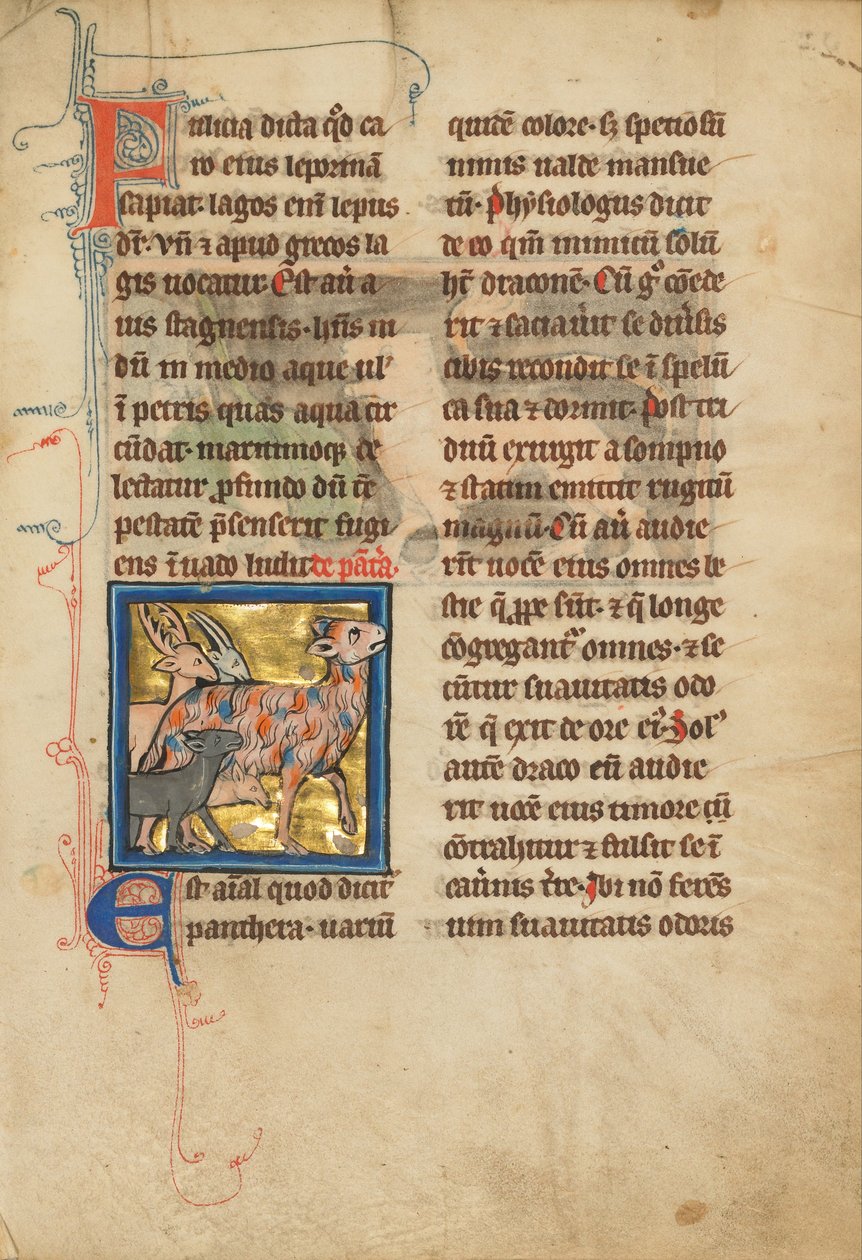 Fulicia dicta qͦd ca
ro eius leporinā
sapiat. lagos enī lepus
dr̄. vn̄ ⁊ apud grecos la
gis uocatur. Est au̍ a
uis stagnensis. hn̄s ni
dū in medio aque ul̕
ī petris quas aqua cir
cūdat. maritimoqꝫ de
lectatur ꝓfundo dū tē
pestatē p̄senserit fugi
ens ī uado ludit de pāt̍a.
Est aīal quod dicit᷑
panthera. uariū
quidē colore. sꝫ speciosū
nimis ualde mansue
tū. Phẏsiologus dicit
de eo qm̄ inimicū solū
ht̄ draconē. Cū gͦ cōede
rit ⁊ saciau̍it se diu̍sis
cibis recondit se ī spelū
ca sua ⁊ dormit. Post tri
duū exurgit a sompno
⁊ statim emittit rugitū
magnū. Cū au̍ audie
rīt uocē eius omnes be
stie q̄ ꝓpe sūt. ⁊ q̄ longe
cōgregant᷑ omnes. ⁊ se
cūtur suauitatis odo
rē q̄ exit de ore ei᷒. Sol̕
autē draco cū audie
rit uocē eius timore
cōtrahitur ⁊ fulsit se ī
cau̍nis t̍re. Ibi nō ferēs
uim suauitatis odoris